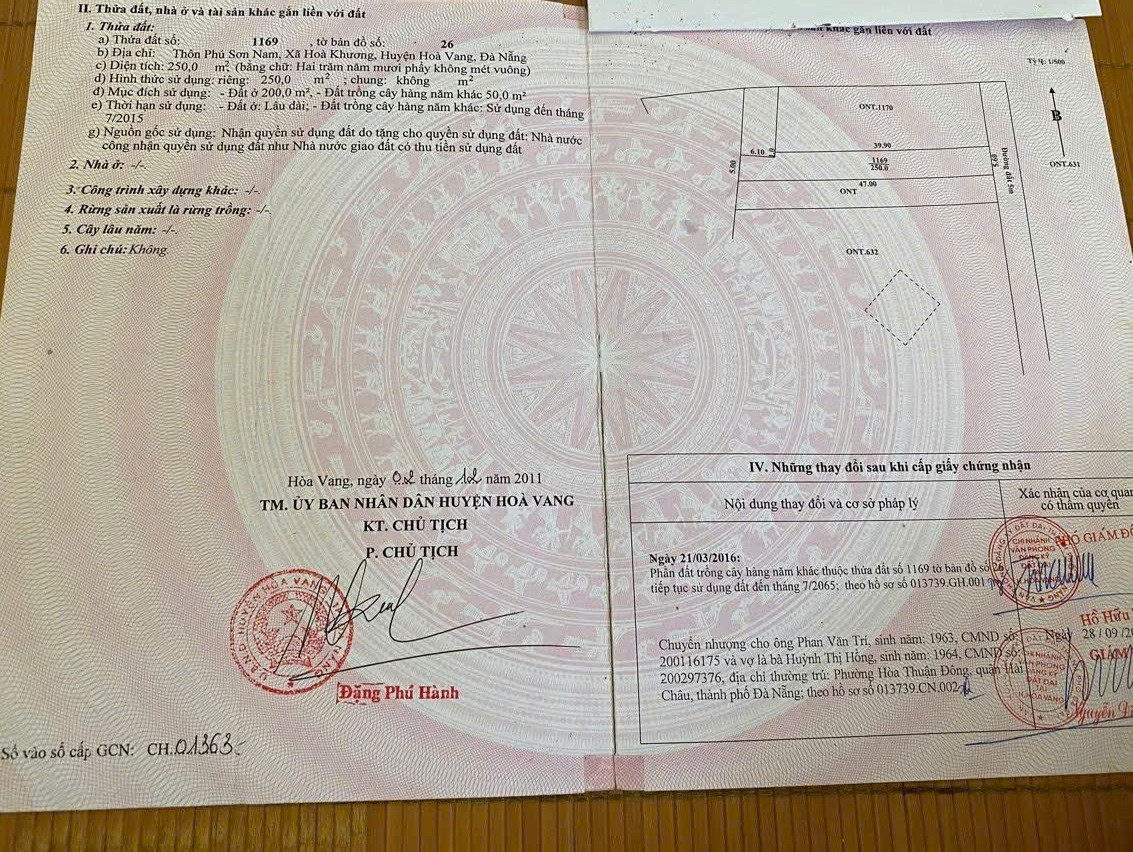 II. Thửa đất, nhà ở và tài sản khác gắn liền với đất
1. Thửa đất:
a) Thửa đất số: 1169 , tờ bản đồ số: 26
b) Địa chỉ: Thôn Phú Sơn Nam, Xã Hoà Khương, Huyện Hoà Vang, Đà Nẵng
c) Diện tích: 250,0 m², (bằng chữ: Hai trăm năm mươi phẩy không mét vuông)
d) Hình thức sử dụng: riêng: 250,0 m² ; chung: không m²
đ) Mục đích sử dụng: - Đất ở 200,0 m², - Đất trồng cây hàng năm khác 50,0 m²
e) Thời hạn sử dụng: - Đất ở: Lâu dài; - Đất trồng cây hàng năm khác: Sử dụng đến tháng
7/2015
g) Nguồn gốc sử dụng: Nhận quyền sử dụng đất do tặng cho quyền sử dụng đất: Nhà nước
công nhận quyền sử dụng đất như Nhà nước giao đất có thu tiền sử dụng đất
2. Nhà ở: -/-.
3. Công trình xây dựng khác: -/-.
4. Rừng sản xuất là rừng trồng: -/-.
5. Cây lâu năm: -/-.
6. Ghi chú: Không.
Hòa Vang, ngày 02 tháng 12 năm 2011
TM. ỦY BAN NHÂN DÂN HUYỆN HOÀ VANG
KT. CHỦ TỊCH
P. CHỦ TỊCH
Đặng Phú Hành
Số vào sổ cấp GCN: CH.01363
khác gắn liền với đất
Tỷ lệ: 1/500
ONT.1170
B
ONT.631
6.10
39.90
1169
250.0
5.00
47.00
ONT
Đường đất 5m
ONT.632
IV. Những thay đổi sau khi cấp giấy chứng nhận
Nội dung thay đổi và cơ sở pháp lý
Xác nhận của cơ quan
có thẩm quyền
Ngày 21/03/2016:
Phần đất trồng cây hàng năm khác thuộc thửa đất số 1169 tờ bản đồ số 26
tiếp tục sử dụng đất đến tháng 7/2065; theo hồ sơ số 013739.GH.001
PHÓ GIÁM ĐỐ
CHI NHÁNH
VĂN PHÒNG
ĐĂNG KÝ
ĐẤT ĐAI
Hồ Hữu
Chuyển nhượng cho ông Phan Văn Trí, sinh năm: 1963, CMND số:
200116175 và vợ là bà Huỳnh Thị Hồng, sinh năm: 1964, CMND số:
200297376, địa chỉ thường trú: Phường Hòa Thuận Đông, quận Hải
Châu, thành phố Đà Nẵng; theo hồ sơ số 013739.CN.002
Ngày 28/09/20
GIÁM
CHI NHÁNH
VĂN PHÒNG
ĐĂNG KÝ
ĐẤT ĐAI
TẠI
H.HÒA VANG
Nguyễn